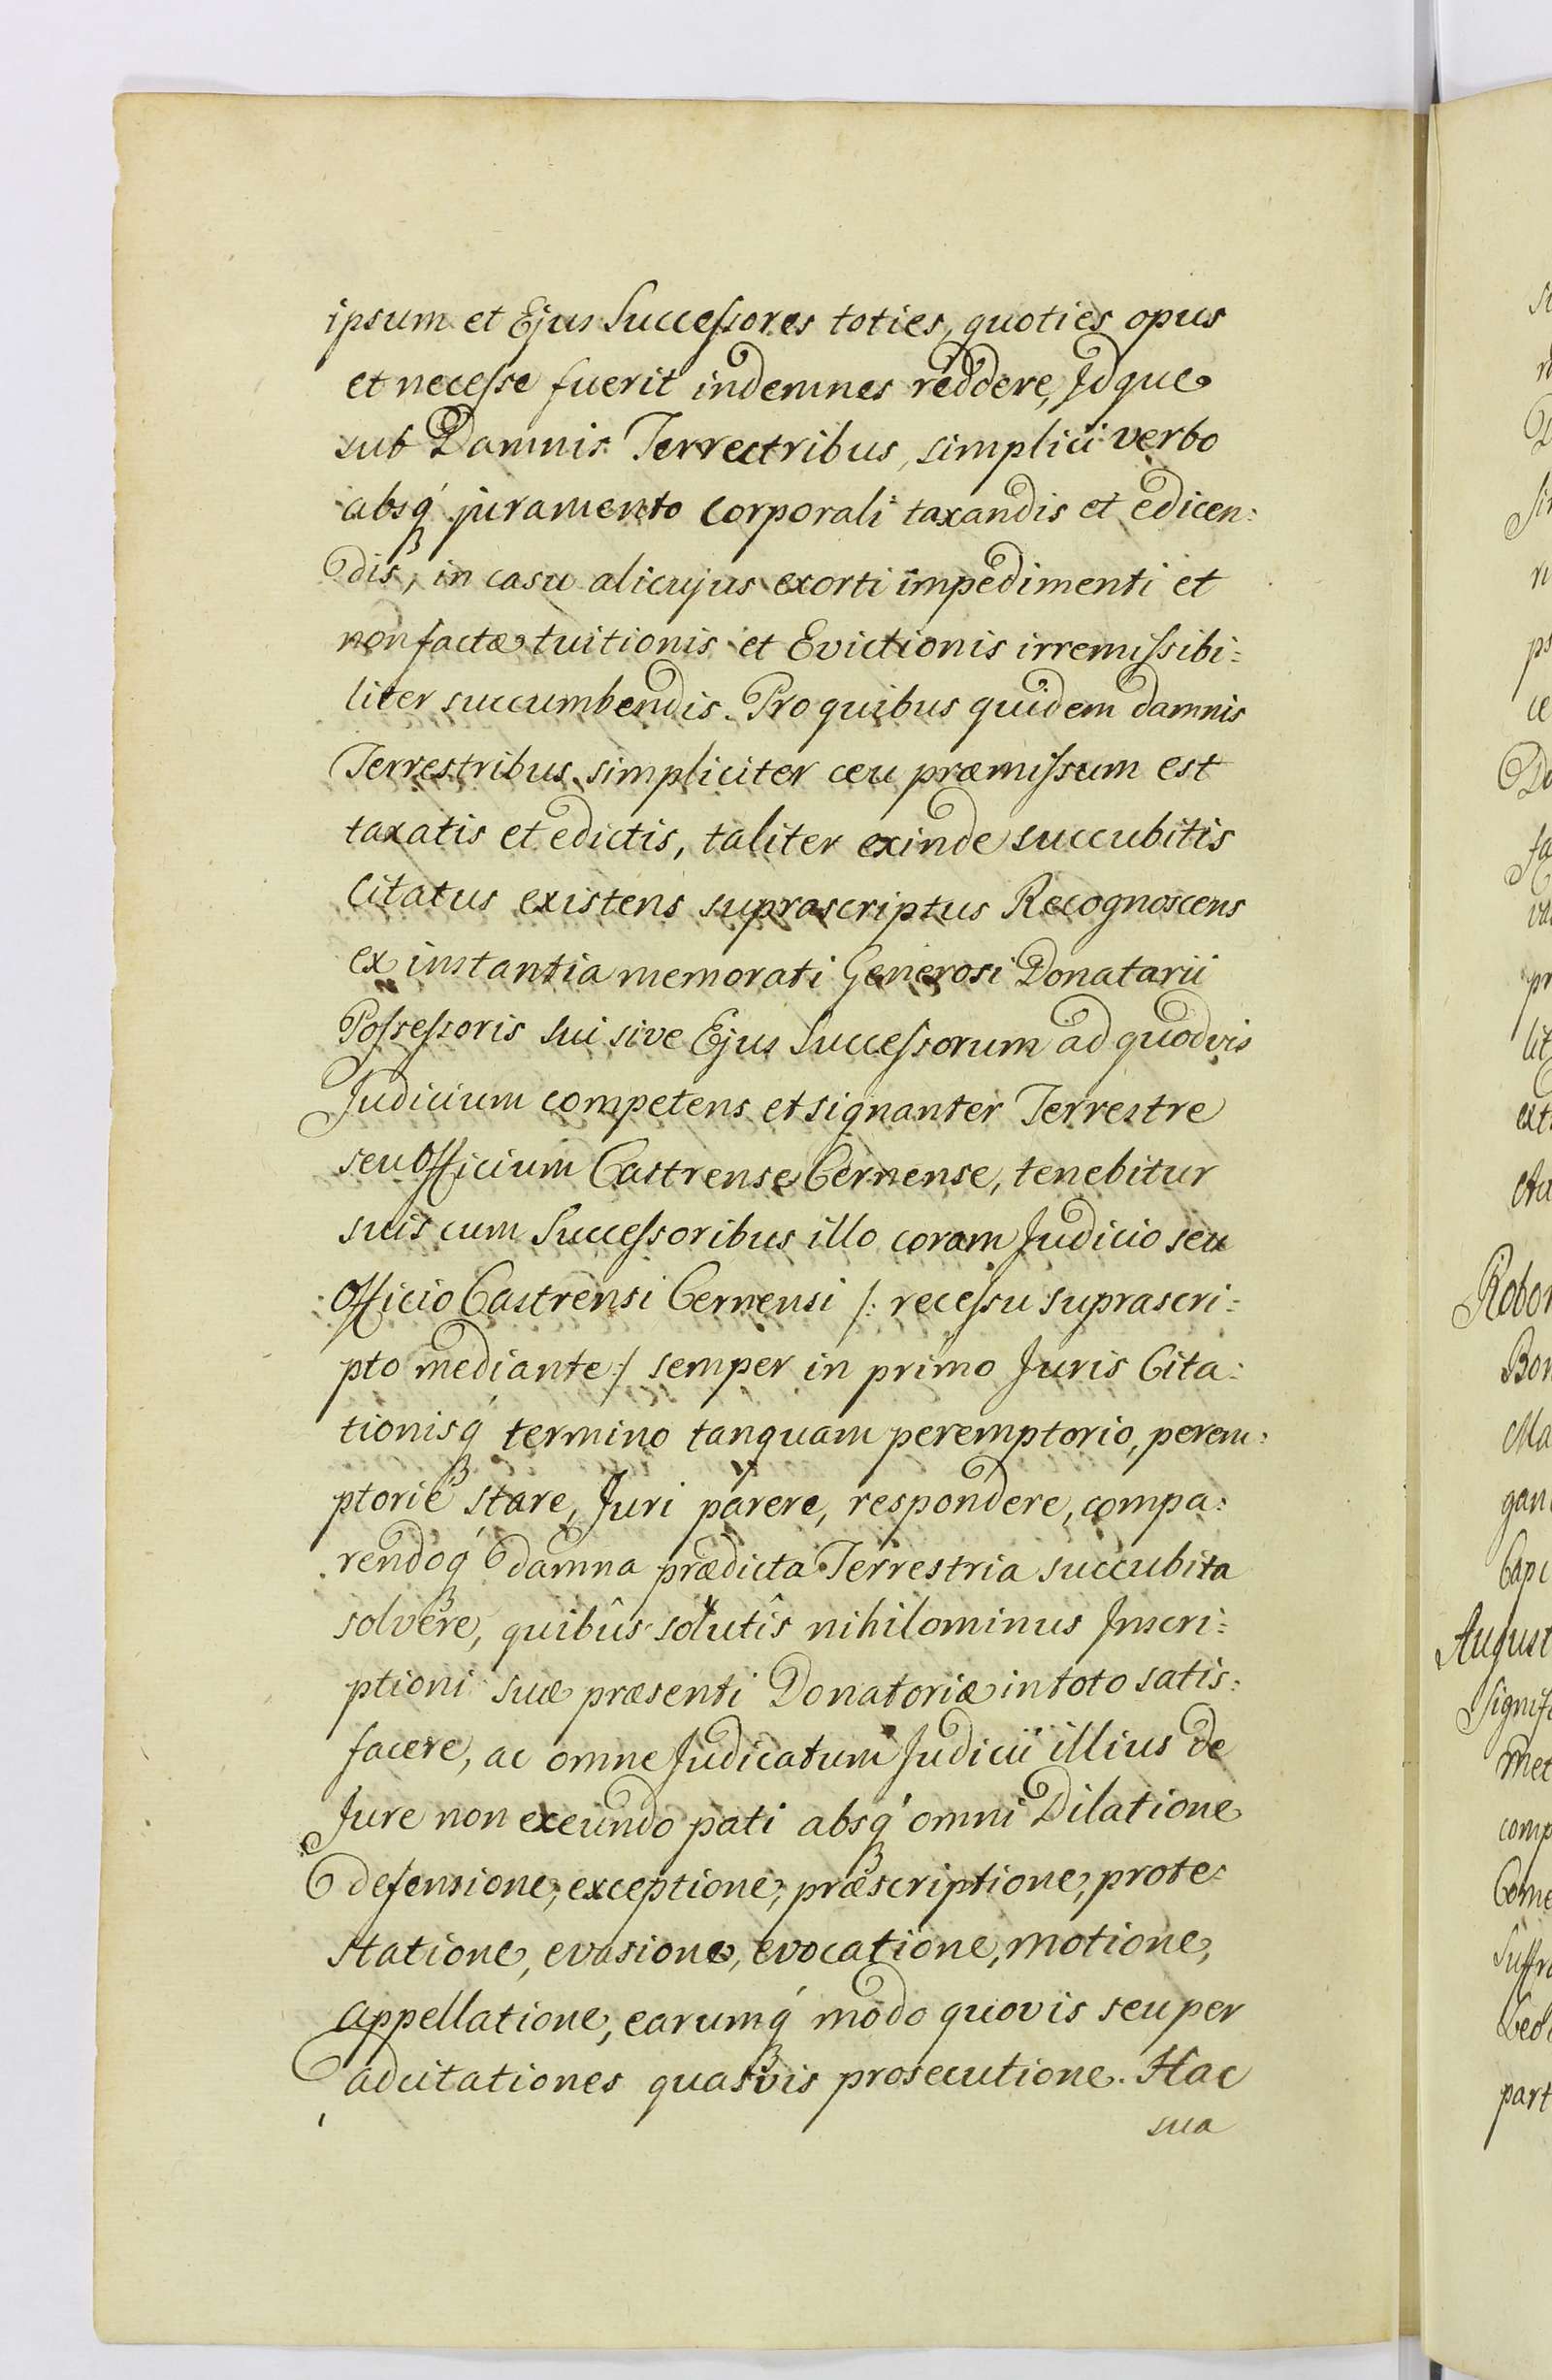 ipsum et Ejus Successores toties, quoties opus
et necesse fuerit indemnes reddere, Idque
sub Damnis Terrestribus, simplici verbo
absq́ juramento corporali taxandis et edicen:
dis, in casu alicujus exorti impedimenti et
non factæ tuitionis et Evictionis irremissibi:
liter succumbendis. Pro quibus quidem damnis
Terrestribus simpliciter ceu præmissum est
taxatis et edictis, taliter exinde succubitis
Citatus existens suprascriptus Recognoscens
ex instantia memorati Generosi Donatarii
Possessoris sui sive Ejus Successorum ad quodvis
Judicium competens et signanter Terrestre
seu Officium Castrense Cernense, tenebitur
suis cum Successoribus illo coram Judicio seu
Officio Castrensi Cernensi /: recessu suprascri:
pto mediante :/ semper in primo Juris Cita:
tionisq́ termino tanquam peremptorio, perem:
ptorie stare, Juri parere, respondere, compa:
rendoq́ damna prædicta Terrestria succubita
solvere, quibûs solutîs nihilominus Inscri:
ptioni suæ præsenti Donatoriæ in toto satis:
facere, ac omne Judicatum Judicii illius de
Jure non exeundo pati absq́ omni Dilatione
defensione, exceptione, præscriptione, prote:
statione, evasione, evocatione, motione,
appellatione, earumq́ modo quovis seu per
adcitationes quasvis prosecutione. Hac
sua